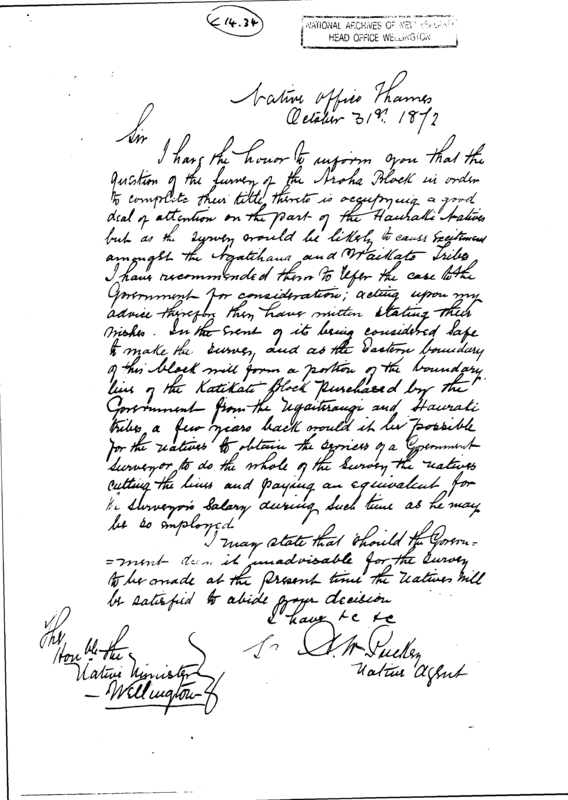 C 14.34
NATIONAL ARCHIVES OF NEW ZEALAND
HEAD OFFICE WELLINGTON
Native Office Thames
October 31st. 1872
Sir
I have the honor to inform you that the
question of the Survey of the Aroha Block in order
to complete their title thereto is occupying a good
deal of attention on the part of the Hauraki Natives
but as the Survey would be likely to cause excitement
amongst the Ngatihaua and Waikato Tribes
I have recommended them to refer the case to the
Government for consideration; acting upon my
advice therefore they have written stating their
wishes. In the event of its being considered safe
to make the Survey, and as the Eastern boundary
of this block will form a portion of the boundary
line of the Katikati Block purchased by the
Government from the Ngaiterangi and Hauraki
tribes, a few years back would it be possible
for the natives to obtain the services of a Government
Surveyor to do the whole of the Survey, the natives
cutting the lines and paying an equivalent for
the Surveyor's Salary during such time as he may
be so employed
I may state that should the Govern=
=ment deem it unadvisable for the Survey
to be made at the present time the Natives will
be satisfied to abide your decision
I have &c &c
E. W. Puckey
Native Agent
The
Honble. the
Native Minister
Wellington